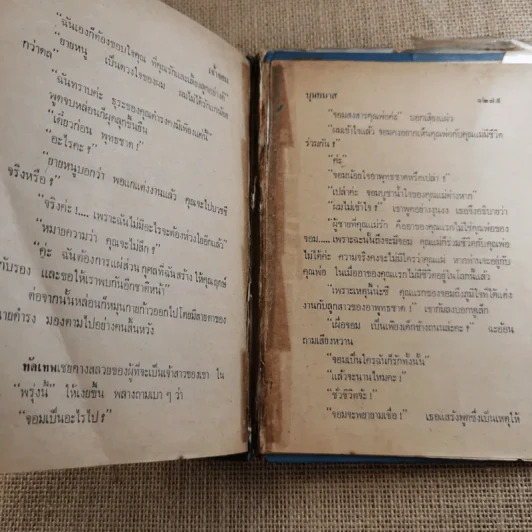 "ฉันเองก็ต้องขอบใจคุณ ที่คุณรักและเลี้ยงลูกอย่างดี"
"ยายหนู เป็นดวงใจของผม ผมไม่ได้รักเขาน้อย
กว่าคุณ"
"ฉันทราบค่ะ ธุระของคุณดำรงคงมีเพียงแค่นี้"
พูดจบหล่อนก็ผุดลุกขึ้นยืน
"เดี๋ยวก่อน พุทธชาด!"
"อะไรคะ?"
"ยายหนูบอกว่า พอแกแต่งงานแล้ว คุณจะไปบวชชี
จริงหรือ?"
"จริงค่ะ!.... เพราะฉันไม่มีอะไรจะต้องห่วงใยอีกแล้ว"
"หมายความว่า คุณจะไม่สึก?"
"ค่ะ ฉันต้องการแผ่ส่วนกุศลที่ฉันสร้าง ให้คุณฤกษ์
กับรอง และขอให้เราพบกันอีกชาติหน้า"
ต่อจากนั้นหล่อนก็หมุนกายก้าวออกไปโดยมีสายตาของ
นายดำรง มองตามไปอย่างคนสิ้นหวัง
ทัดเทพเชยคางสลวยของผู้ที่จะเป็นเจ้าสาวของเขา ใน
"พรุ่งนี้" ให้เงยขึ้น พลางถามเบา ๆ ว่า
"จอมเป็นอะไรไป?"
บุษยมาส
๑๒๘๕
"จอมสงสารคุณพ่อค่ะ" บอกเสียงแผ่ว
"ผมเข้าใจแล้ว จอมคงอยากเห็นคุณพ่อกับคุณแม่มีชีวิต
ร่วมกัน?"
"ค่ะ"
"จอมน้อยใจอาพุทธชาดหรือเปล่า?"
"เปล่าค่ะ จอมบูชาน้ำใจของคุณแม่ต่างหาก"
"ผมไม่เข้าใจ!" เขาพูดอย่างงุนงง เธอจึงอธิบายว่า
"ผู้ชายที่คุณแม่รัก คืออาของคุณแรกไม่ใช่คุณพ่อของ
จอม.....เพราะฉะนั้นถึงจะมีจอม คุณแม่ก็ร่วมชีวิตกับคุณพ่อ
ไม่ได้ค่ะ ความจริงคงจะไม่มีใครว่าคุณแม่ หากท่านจะอยู่กับ
คุณพ่อ ในเมื่ออาของคุณแรกไม่มีชีวิตอยู่ในโลกนี้แล้ว
"เพราะเหตุนี้น่ะซี คุณแรกของจอมถึงภูมิใจที่ได้แต่ง
งานกับลูกสาวของอาพุทธชาด!" เขาก้มลงบอกหูเล็ก
"เผื่อจอม เป็นเพียงเด็กข้างถนนล่ะคะ?" ฉะอ้อน
ถามเสียงหวาน
"จอมเป็นใครฉันก็รักทั้งนั้น"
"แล้วจะนานไหมคะ?"
"ชั่วชีวิตจ้ะ!"
"จอมจะพยายามเชื่อ!" เธอแสร้งพูดซึ่งเป็นเหตุให้